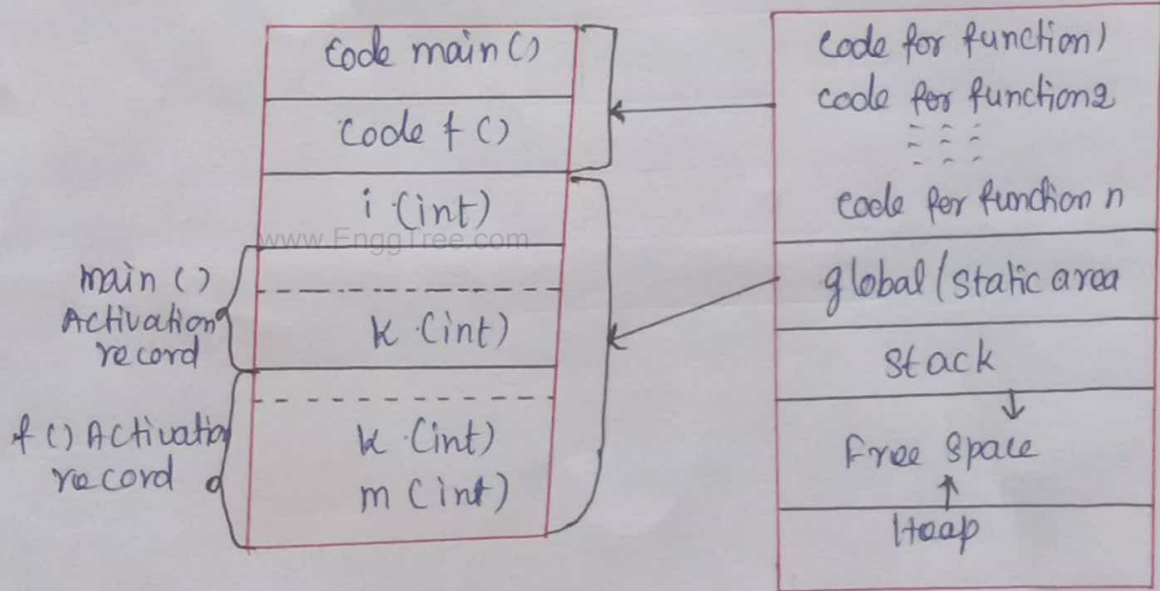 code main()
code f()
i (int)
www.EnggTree.com
main()
Activation
record
k (int)
f() Activation
record
k (int)
m (int)
code for function 1
code for function 2
code for function n
global/static area
stack
Free space
Heap